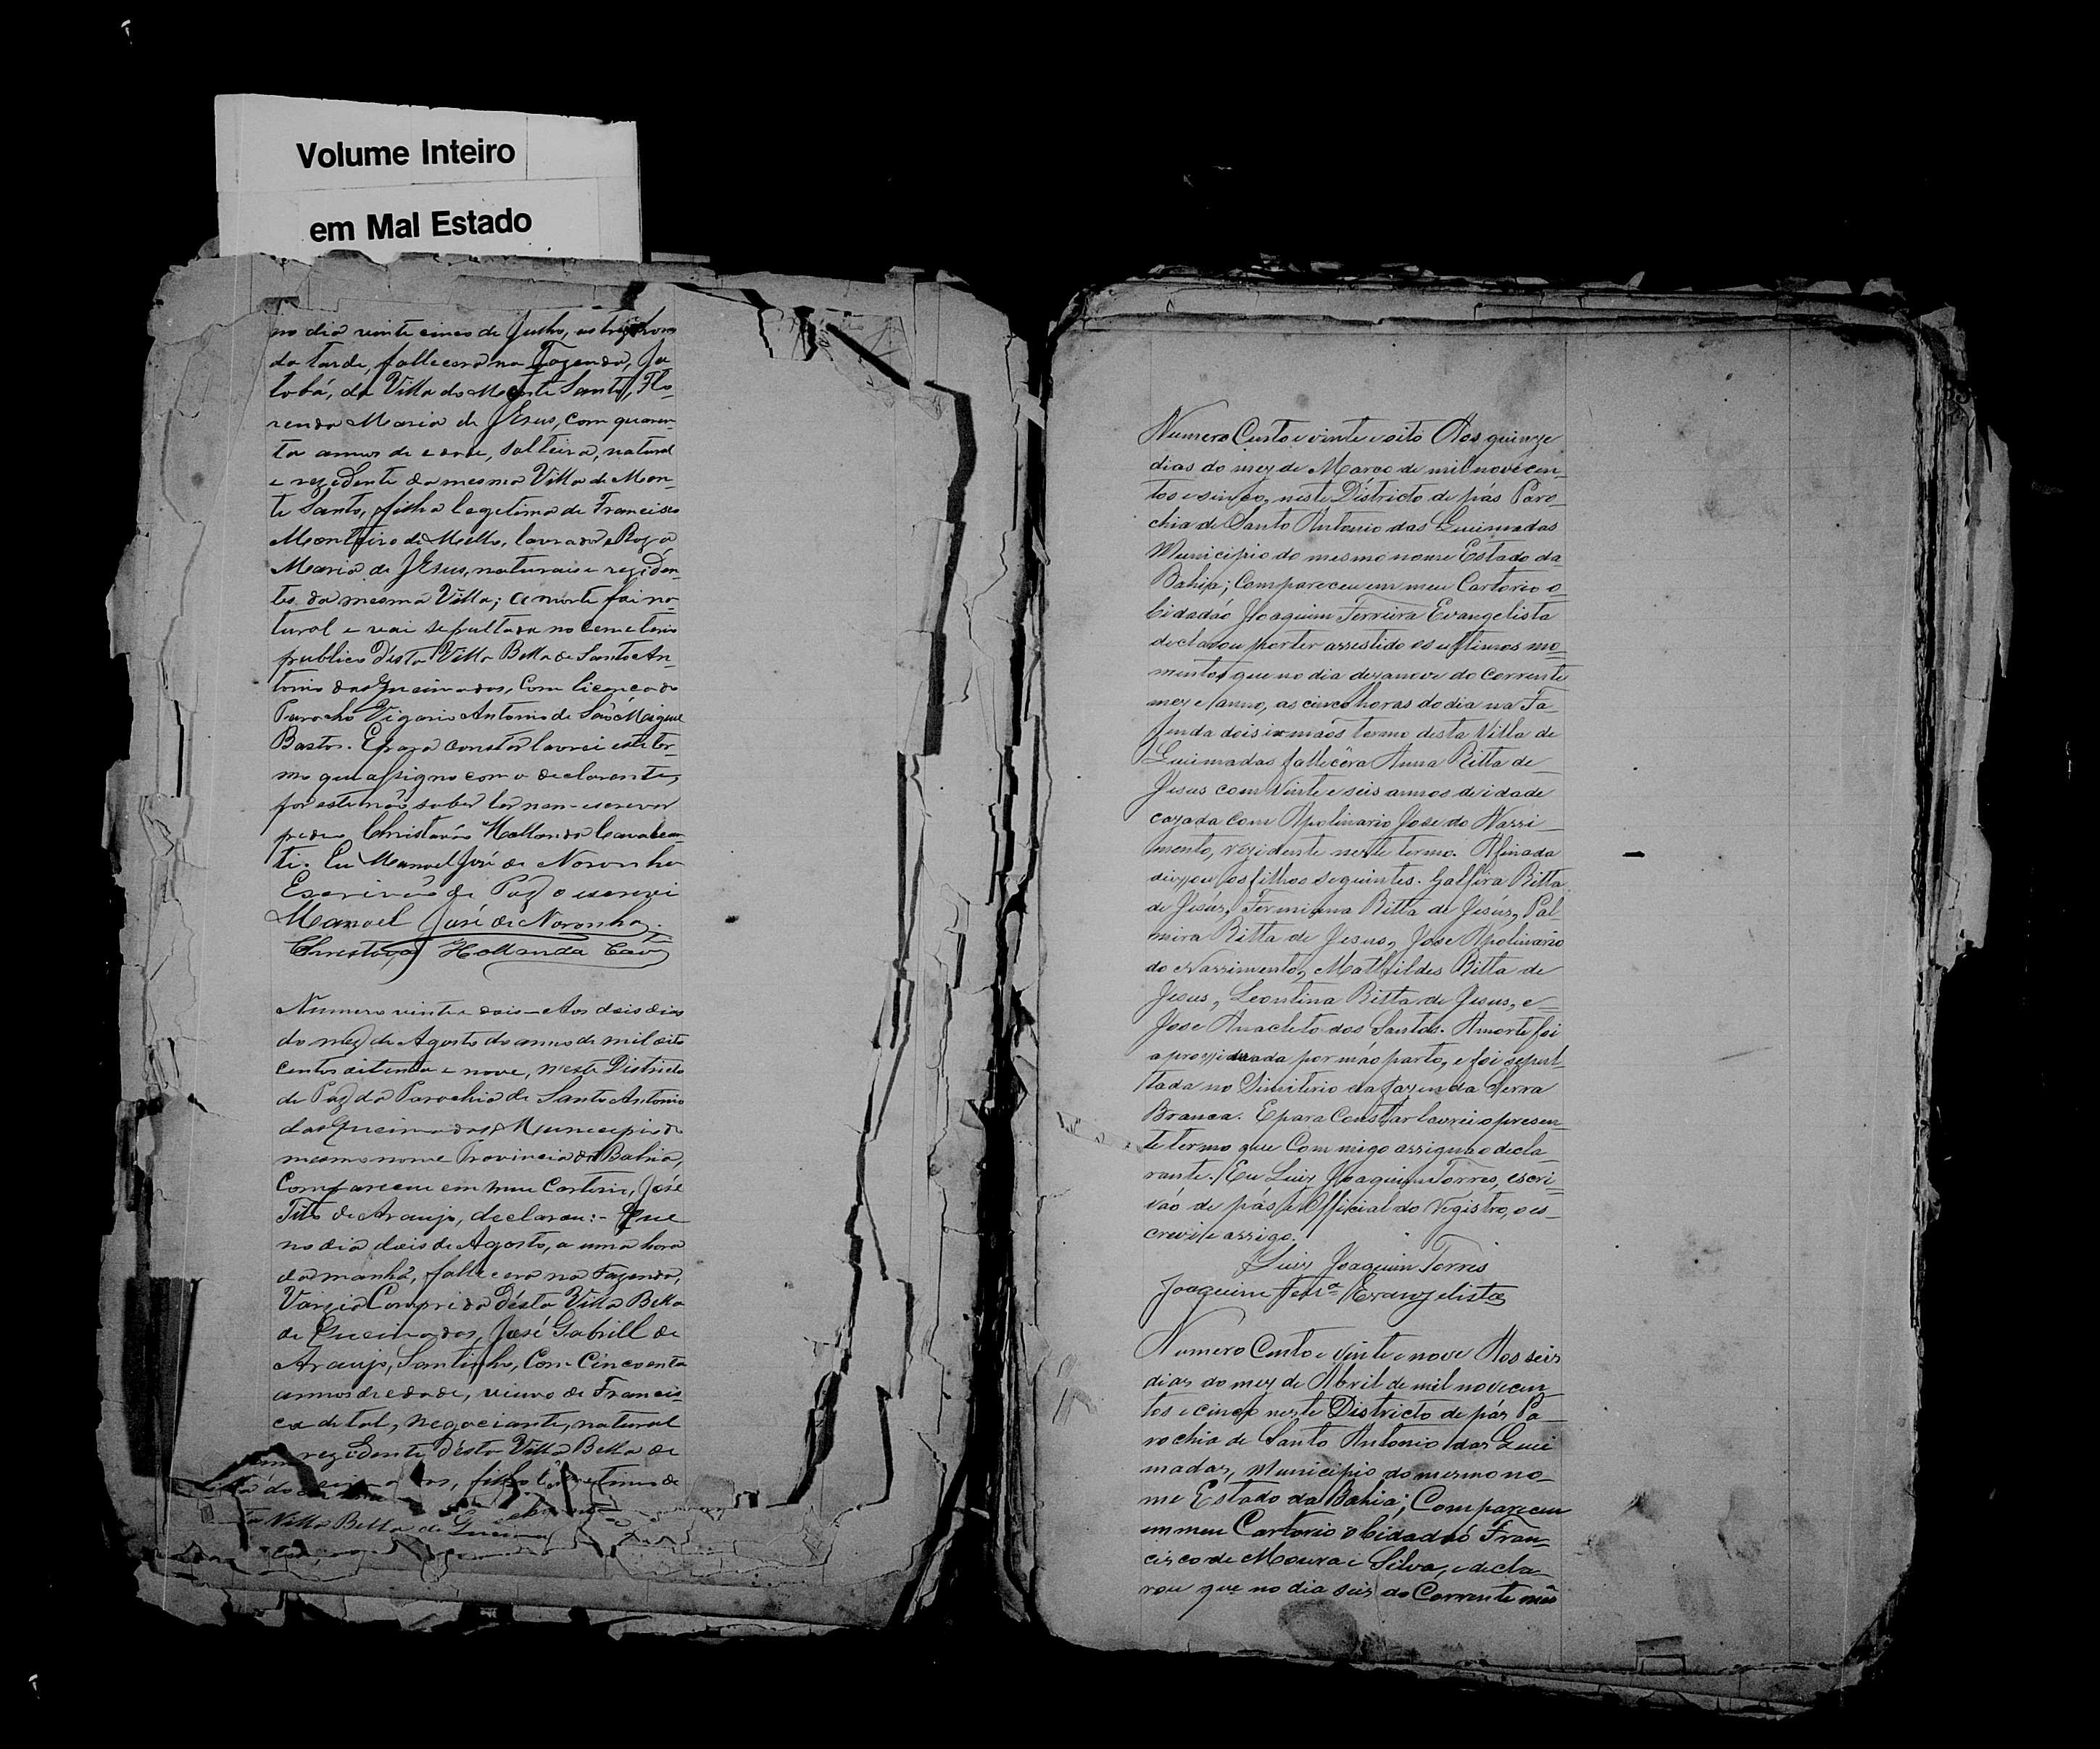 Volume Inteiro
em Mal Estado
no dia vinte cinco de Julho, as tres horas
da tarde, fallecera na Fazenda, Ja
tobá, da Villa do Monte Santo, Flo-
renda Maria de Jesus, com quaren-
ta annos de edade, solteira, natural
e rezidente da mesma Villa de Mon-
te Santo, filha legetima de Francisco
Monteiro de Mello, lavrador e Roza
Maria de Jesus, naturais e reziden-
tes da mesma Villa; a morte foi na-
tural e vai sepultada no Cemeterio
publico désta Villa Bella de Santo An-
tonio das Queimadas, com licença do
Parocho Vigario Antonio de São Miguel
Bastos. E para constar lavrei este ter-
mo que assigno com o declarante,
por este não saber ler nem escrever
pedeu Christovão Hollanda Cavalcan-
ti. Eu Manoel José de Noronha
Escrivão de Paz o escrevi
Manoel José de Noronha.
Christovão Hollanda Cavte
Numero vinte e dois - Aos dois dias
do mez de Agosto do anno de mil oito
centos oitenta e nove, neste Districto
de Paz da Parochia de Santo Antonio
das Queimadas, Municipio do
mesmo nome Provincia da Bahia,
Compareceu em meu Cartorio, José
Tito de Araujo, declarou:- Que
no dia dois de Agosto, a uma hora
da manhã, fallecera na Fazenda,
Varzia Comprida désta Villa Bella
de Queimadas, José Gabriell de
Araujo, Santinho, Com Cincoenta
annos de edade, viuvo de Francis-
ca de tal, negociante, natural
e rezidente désta Villa Bella de
filho legetimo de
ta Villa Bella de
Numero Cento e vinte e oito Aos quinze
dias do mez de Março de mil novecen-
tos e sinco, neste Districto de pás Paro-
chia de Santo Antonio das Queimadas
Municipio do mesmo nome Estado da
Bahia; Compareceu em meu Cartorio o
Cidadaó Joaquim Ferreira Evangelista
declarou por ter assestido os ultimos mo-
mentos que no dia dezanove do Corrente
mez e anno, as cinco horas do dia na Fa-
zenda dois irmãos termo desta Villa de
Queimadas fallecêra Anna Ritta de
Jesus com vinte e seis annos de idade
cazada com Apolinario Jose do Nassi-
mento, rezidente neste termo. A finada
deixou os filhos seguintes. Galfira Ritta
de Jesús, Fermiana Ritta de Jesús, Pal-
mira Ritta de Jesus, Jose Apolinario
do Nassimento, Mathildes Ritta de
Jesus, Leontina Ritta de Jesus, e
Jose Anacleto dos Santos. A morte foi
a proximada por máo parto, e foi sepul-
tada no Simiterio da fazenda Serra
Branca. E para Constar lavrei o presen-
te termo que Commigo assigna o decla-
rante. Eu Luiz Joaquim Torres, escri-
váo de pás e Official do Registro, o es-
crevi e assigo.
Luiz Joaquim Torres
Joaquim Ferra Evangelista
Numero Cento e vinte e nove Aos seis
dias do mez de Abril de mil novecen-
tos e cinco neste Districto de pás Pa-
rochia de Santo Antonio das Quei
madas, Municipio do mesmo no-
me Estado da Bahia; Compareceu
em meu Cartorio o Cidadaó Fran-
cisco de Moura e Silva, e decla-
rou que no dia seis do Corrente mês